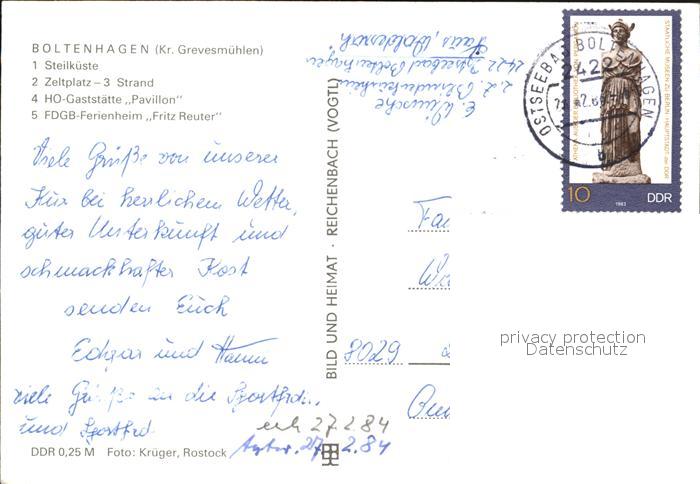 BOLTENHAGEN (Kr. Grevesmühlen)
1 Steilküste
2 Zeltplatz – 3 Strand
4 HO-Gaststätte „Pavillon"
5 FDGB-Ferienheim „Fritz Reuter"
Viele Grüße von unserer
Kur bei herrlichem Wetter,
guter Unterkunft und
schmackhafter Kost
senden Euch
Edgar und Hanni
viele Grüße an die
und
27.2.84
27.2.84
DDR 0,25 M Foto: Krüger, Rostock
BILD UND HEIMAT · REICHENBACH (VOGTL)
E.
z. Z.
2422 Ostseebad Boltenhagen
Haus
OSTSEEBAD BOLTENHAGEN
2422
b
STAATLICHE MUSEEN ZU BERLIN HAUPTSTADT der DDR
10
1983
DDR
Fa
8029
privacy protection
Datenschutz